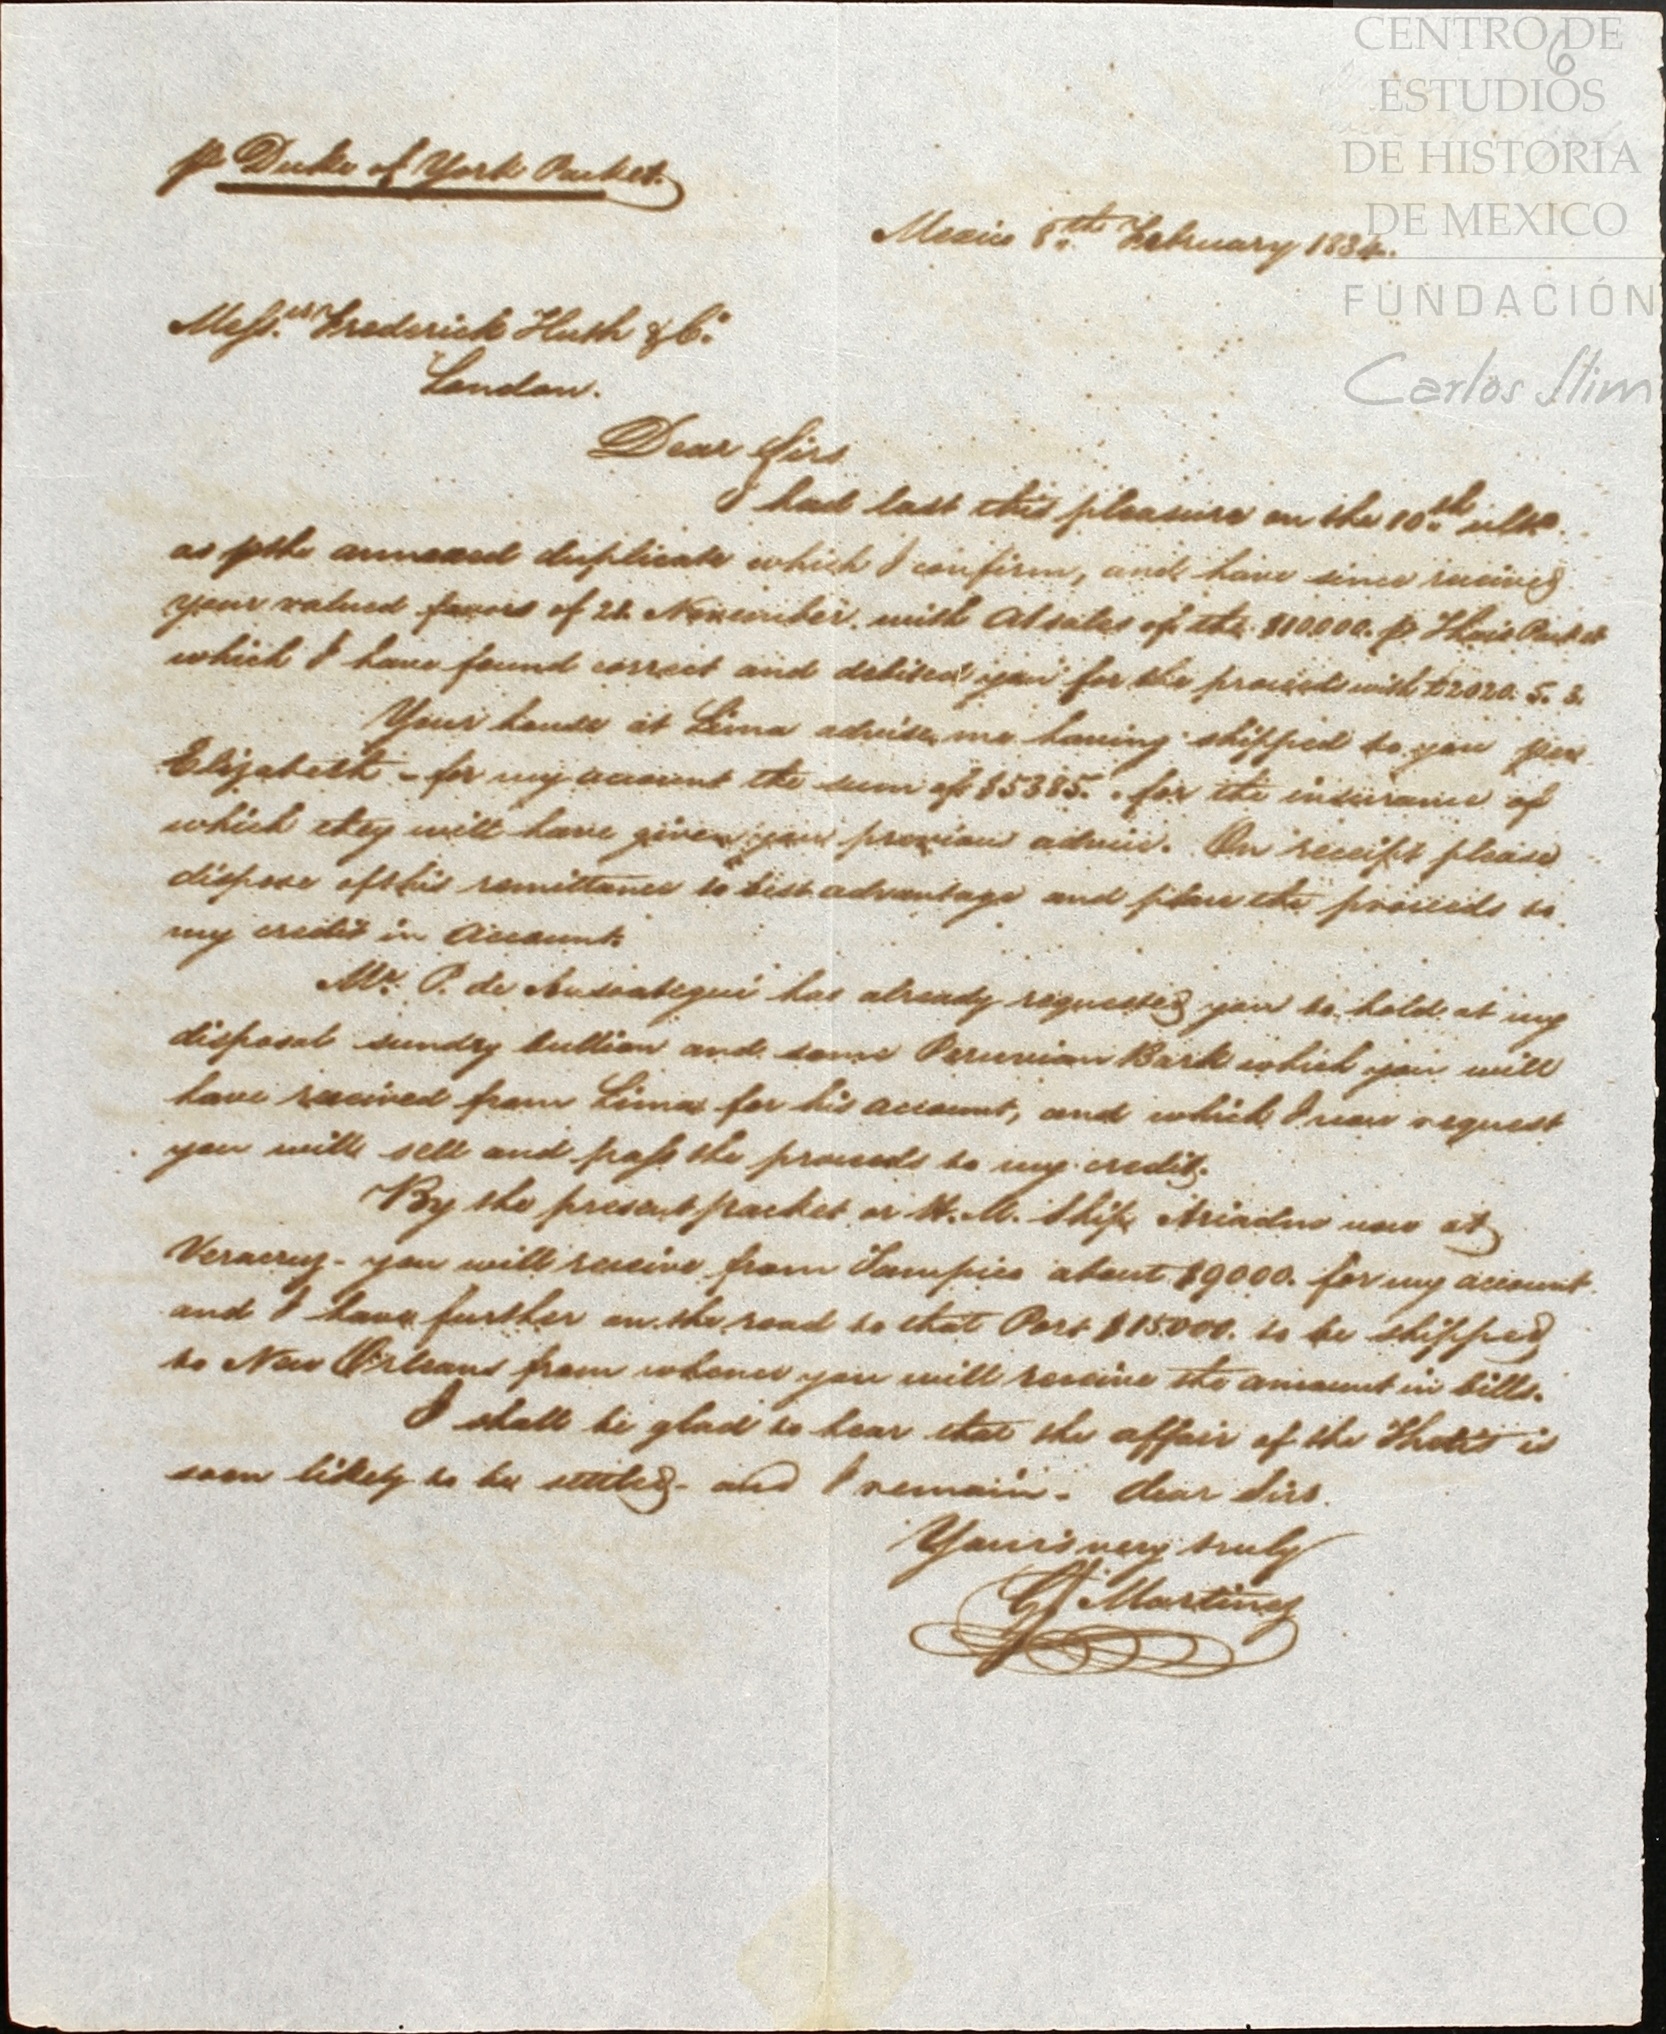 CENTRO DE
ESTUDIOS
DE HISTORIA
DE MEXICO
FUNDACIÓN
Carlos Slim
6
p Duke of York Packet.
Mexico 8.th February 1834.
Mess.rs Frederick Huth & Co.
London.
Dear Sirs
I had last this pleasure on the 10.th ulto.
as p the annexed duplicate which I confirm, and have since received
your valued favors of 21. November. with A/sales of the $10.000. p Packet
which I have found correct and debited you for the proceeds with £2020. 5. 3.
Your house at Lima advise me having shipped to you per
Elizabeth - for my account the sum of $5385. . for the insurance of
which they will have given you previous advice. On receipt please
dispose of this remittance to best advantage and place the proceeds to
my credit in account.
Mr. P. de has already requested you to hold at my
disposal sundry bullion and some Peruvian Bark which you will
have received from Lima for his account, and which I now request
you will sell and pass the proceeds to my credit.
By the present packet or H. M. Ship Ariadne now at
Veracruz - you will receive from Tampico about $9000. for my account
and I have further on the road to that Port $15000. to be shipped
to New Orleans from whence you will receive the amount in bills.
I shall be glad to hear that the affair of the is
soon likely to be settled - and I remain. dear Sirs.
Yours very truly
Martinez